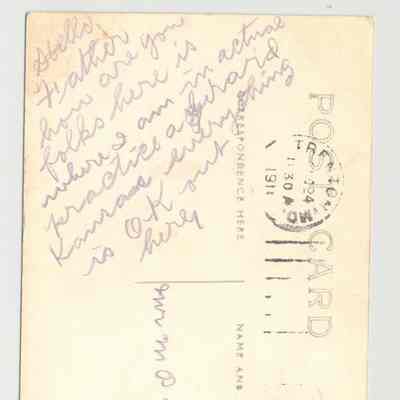 Hello
Father
how are you
folks here is
where I am in actual
practice at Girard
Kansas everything
is OK out
here
POST CARD
CORRESPONDENCE HERE
TRENTON, MO.
1130A
1911
NAME AND